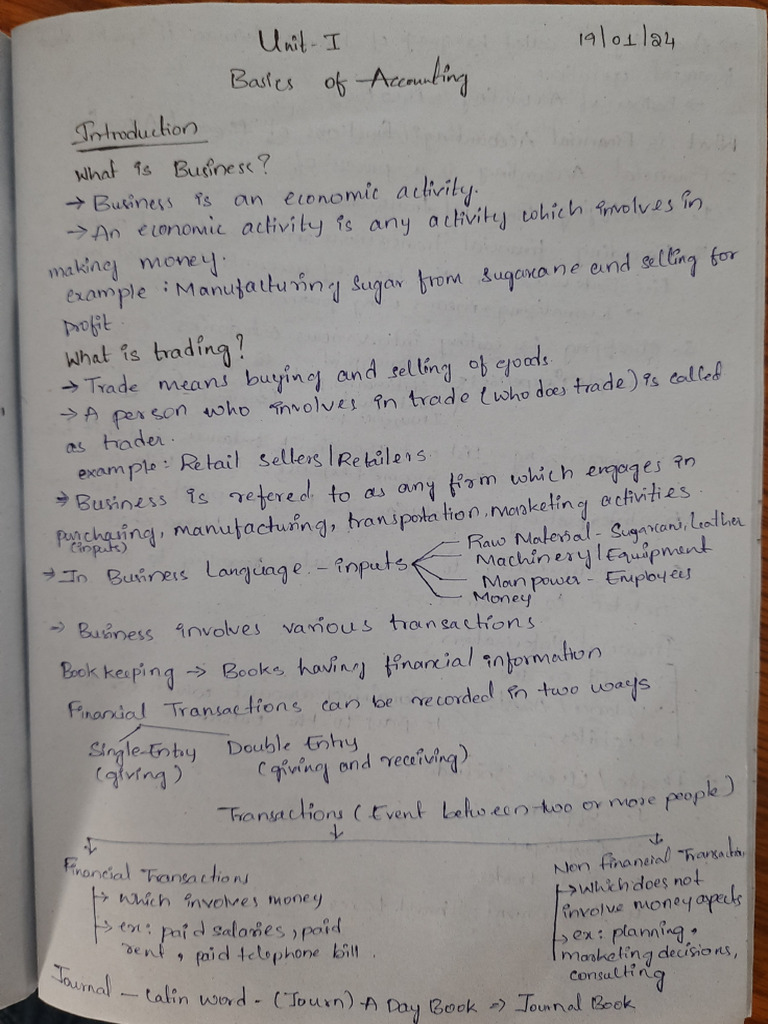 Unit-I 19/01/24
Basics of Accounting
Introduction
What is Business?
→ Business is an economic activity.
→ An economic activity is any activity which involves in
making money.
example : Manufacturing sugar from sugarcane and selling for
profit.
What is trading?
→ Trade means buying and selling of goods.
→ A person who involves in trade (who does trade) is called
as trader.
example: Retail sellers/Retailers.
→ Business is refered to as any firm which engages in
purchasing, manufacturing, transportation, marketing activities.
(inputs)
→ In Business Language - inputs
Raw Material - Sugarcani, leather
Machinery/Equipment
Man power - Employees
Money
→ Business involves various transactions
Book keeping → Books having financial information
Financial Transactions can be recorded in two ways
Single-Entry Double Entry
(giving) (giving and receiving)
Transactions (Event between two or more people)
Financial Transactions
→ which involves money
→ ex: paid salaries, paid
rent, paid telephone bill.
Non financial Transaction
→ which does not
involve money aspects
→ ex: planning,
marketing decisions,
consulting
Journal - Latin word - (Journ) - A Day Book ⇒ Journal Book